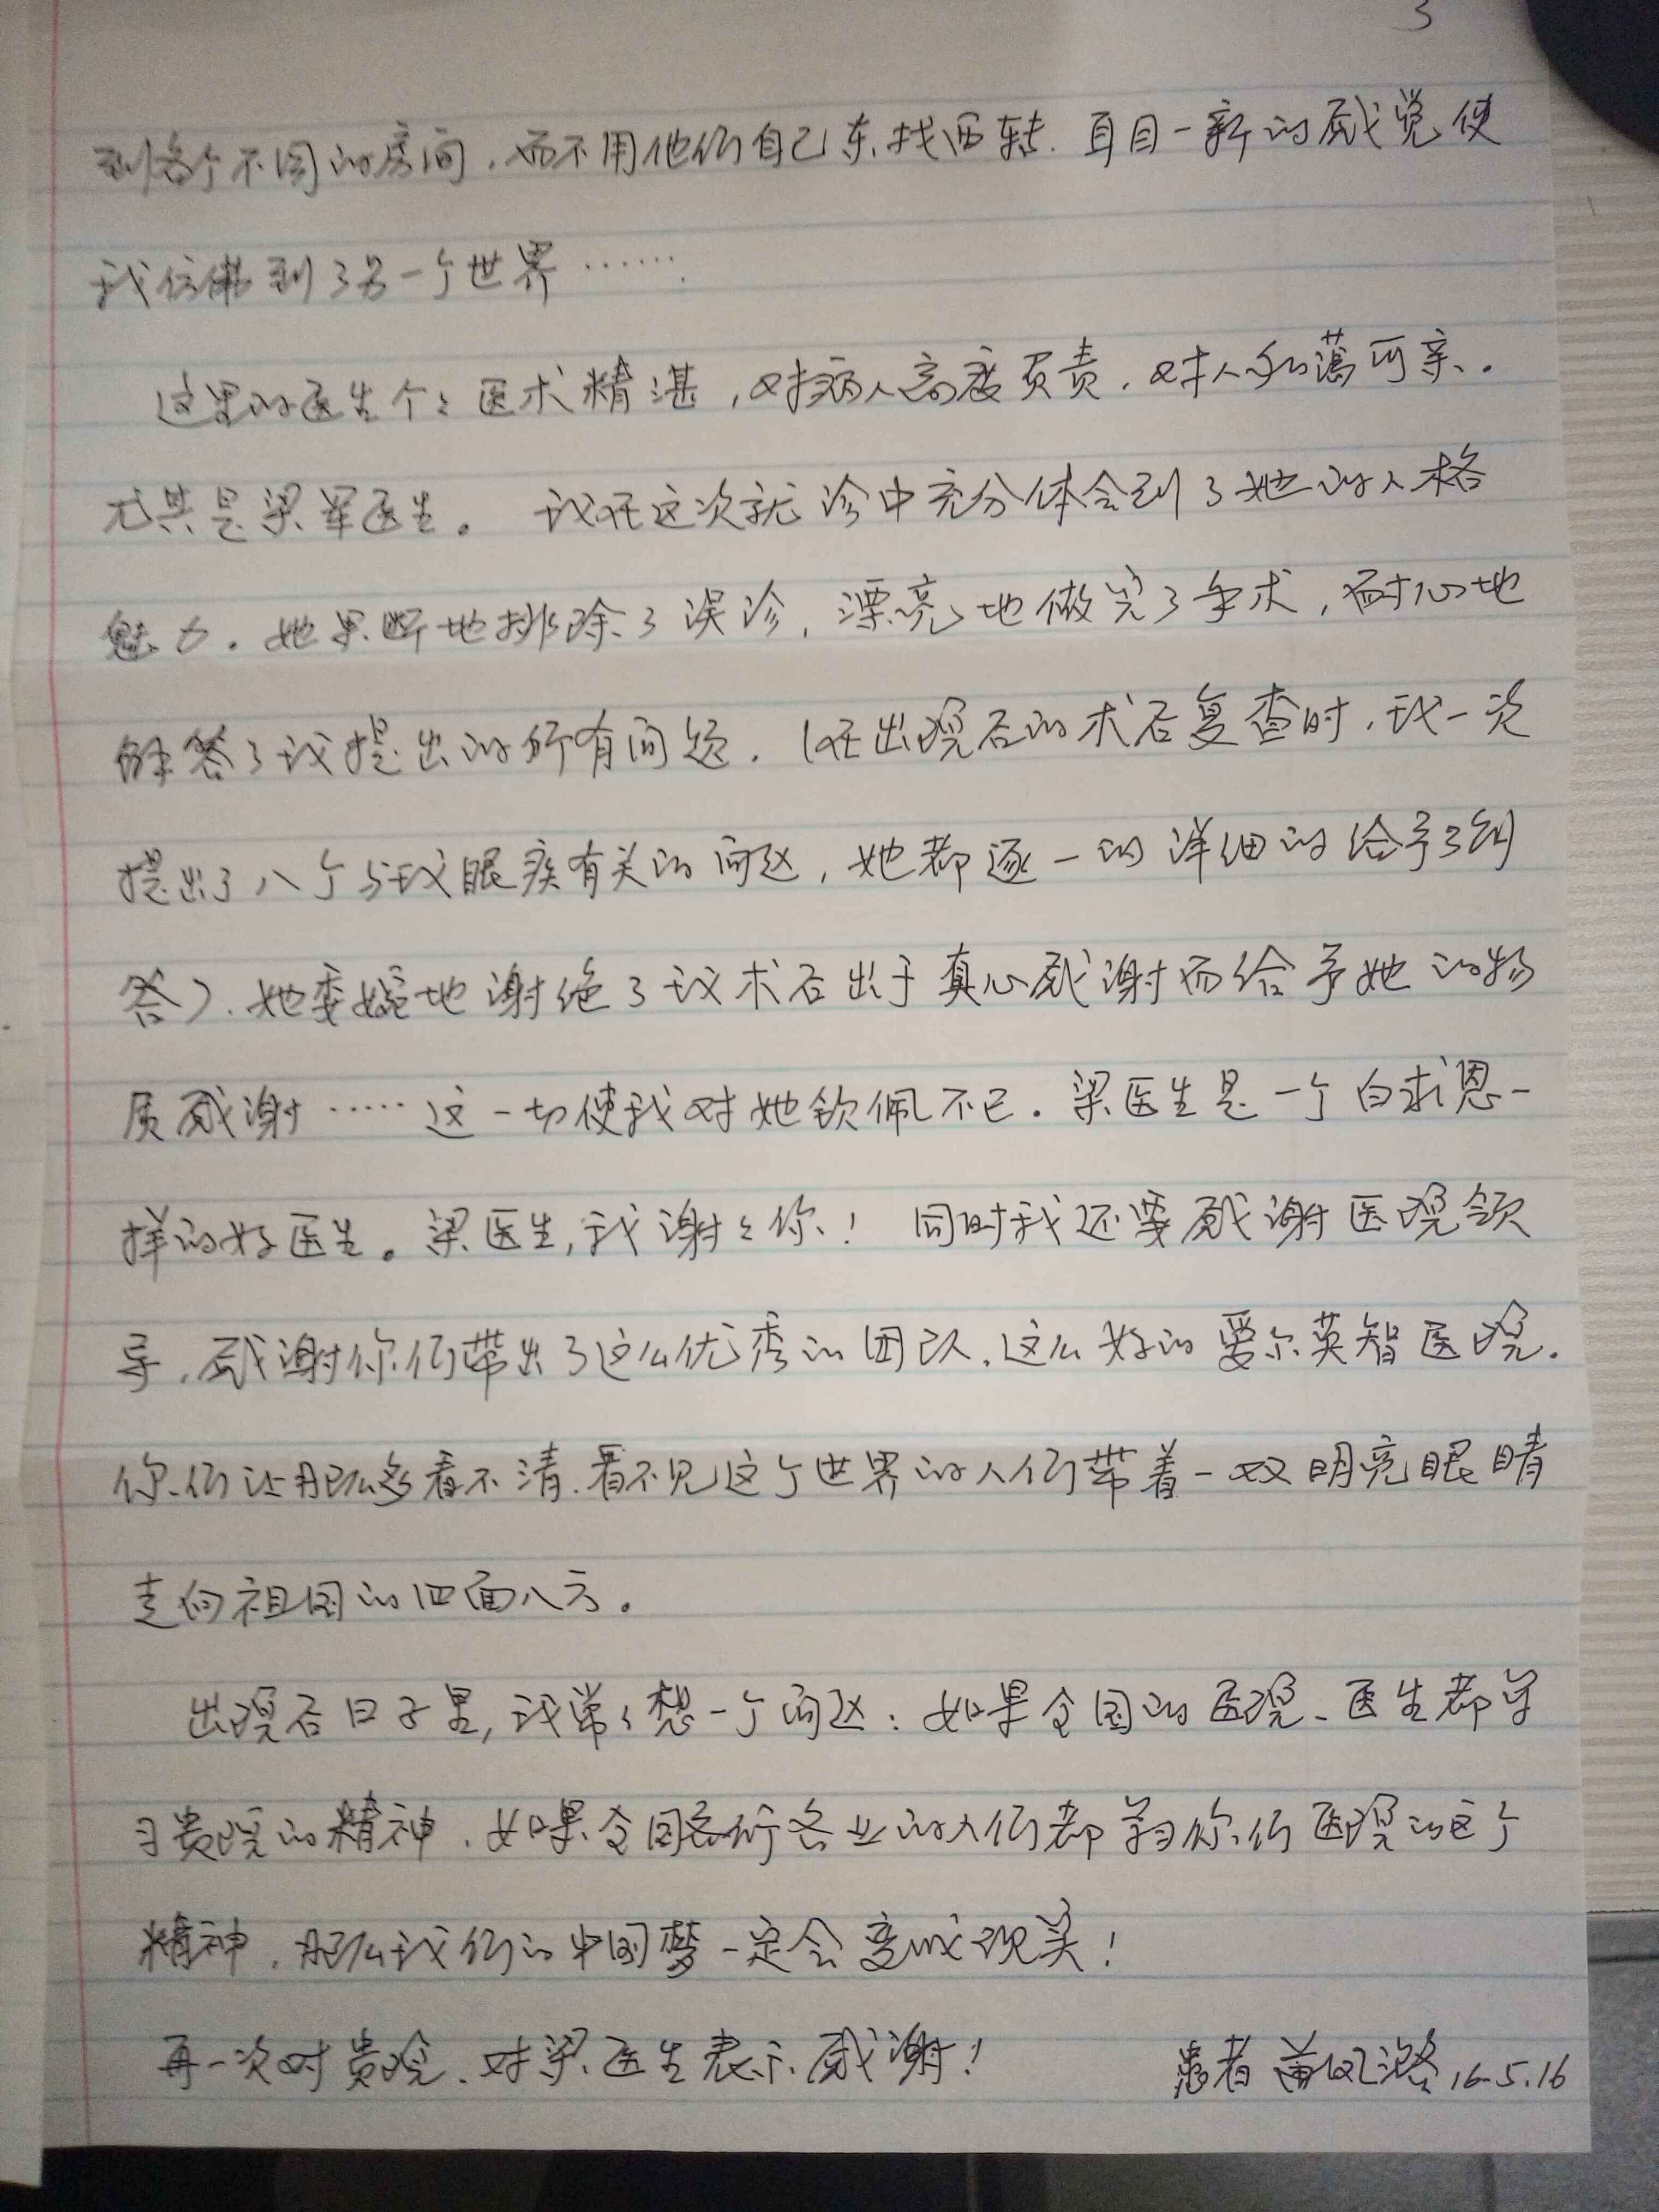 3
到各个不同的房间，而不用他们自己东找西转．耳目一新的感觉使
我仿佛到了另一个世界……．
这里的医生个々医术精湛，对病人高度负责，对人和蔼可亲．
尤其是梁军医生。我在这次就诊中充分体会到了她的人格
魅力．她果断地排除了误诊，漂亮地做完了手术，耐心地
解答了我提出的所有问题．（在出院后的术后复查时，我一次
提出了八个与我眼疾有关的问题，她都逐一的详细的给予了解
答）．她委婉地谢绝了我术后出于真心感谢而给予她的物
质感谢……这一切使我对她钦佩不已．梁医生是一个白求恩一
样的好医生。梁医生，我谢々你！同时我还要感谢医院领
导，感谢你们带出了这么优秀的团队、这么好的爱尔英智医院．
你们让那么多看不清、看不见这个世界的人们带着一双明亮眼睛
走向祖国的四面八方。
出院后日子里，我常々想一个问题：如果全国的医院、医生都学
习贵院的精神，如果全国各行各业的人们都学习你们医院的这个
精神，那么我们的中国梦一定会变成现实！
再一次对贵院、对梁医生表示感谢！ 患者 16.5.16